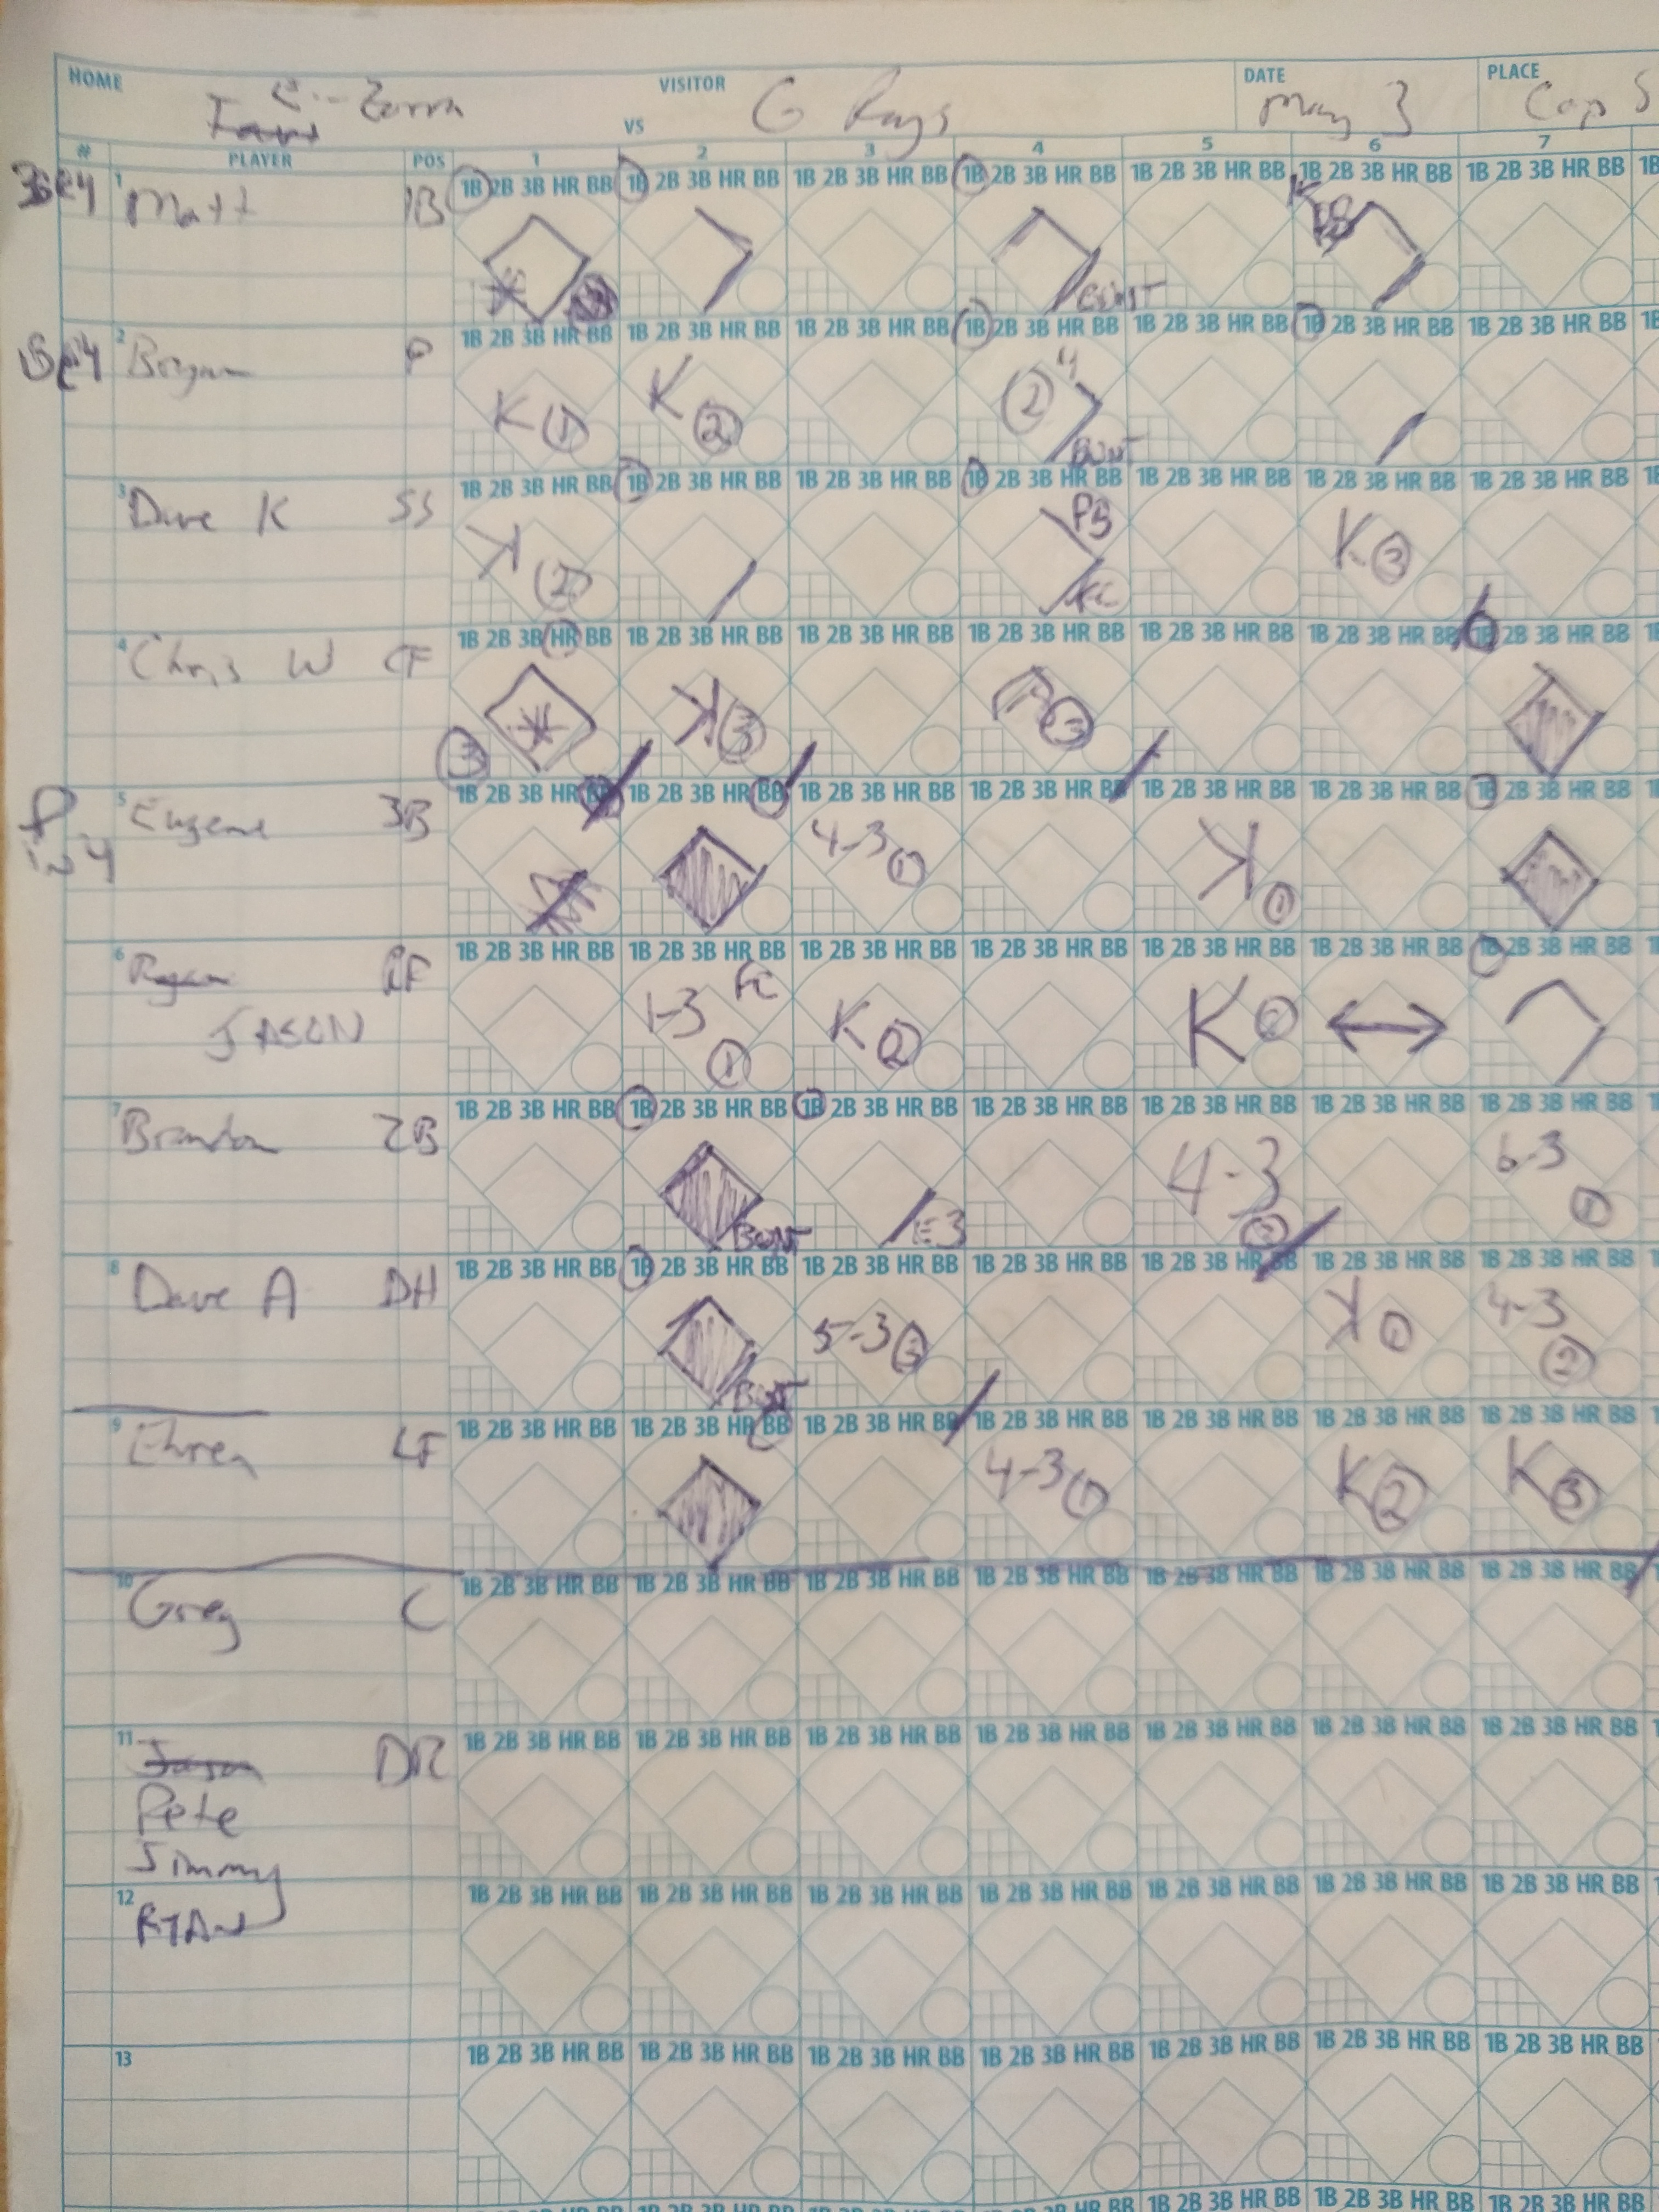 HOME VISITOR DATE PLACE
VS G Rays May 3 Cap S
# PLAYER POS 1 2 3 4 5 6 7
1 Matt 1B 1B 2B 3B HR BB 1B 2B 3B HR BB 1B 2B 3B HR BB 1B 2B 3B HR BB 1B 2B 3B HR BB 1B 2B 3B HR BB 1B 2B 3B HR BB 1B
K
BUNT
2 P 1B 2B 3B HR BB 1B 2B 3B HR BB 1B 2B 3B HR BB 1B 2B 3B HR BB 1B 2B 3B HR BB 1B 2B 3B HR BB 1B 2B 3B HR BB 1B
K 1 K 2 2 4
BUNT
3 Dave K SS 1B 2B 3B HR BB 1B 2B 3B HR BB 1B 2B 3B HR BB 1B 2B 3B HR BB 1B 2B 3B HR BB 1B 2B 3B HR BB 1B 2B 3B HR BB 1B
K 2 PB FC K 3
4 Chris W CF 1B 2B 3B HR BB 1B 2B 3B HR BB 1B 2B 3B HR BB 1B 2B 3B HR BB 1B 2B 3B HR BB 1B 2B 3B HR BB 1B 2B 3B HR BB 1B
3 K 3 3
5 Eugene 3B 1B 2B 3B HR BB 1B 2B 3B HR BB 1B 2B 3B HR BB 1B 2B 3B HR BB 1B 2B 3B HR BB 1B 2B 3B HR BB 1B 2B 3B HR BB 1B
P in 4 4-3 1 K 1
6 Ryan RF 1B 2B 3B HR BB 1B 2B 3B HR BB 1B 2B 3B HR BB 1B 2B 3B HR BB 1B 2B 3B HR BB 1B 2B 3B HR BB 1B 2B 3B HR BB 1B
JASON 1-3 FC 1 K 2 K 2
7 Brandon 2B 1B 2B 3B HR BB 1B 2B 3B HR BB 1B 2B 3B HR BB 1B 2B 3B HR BB 1B 2B 3B HR BB 1B 2B 3B HR BB 1B 2B 3B HR BB 1B
BUNT E3 4-3 3 6-3 1
8 Dave A DH 1B 2B 3B HR BB 1B 2B 3B HR BB 1B 2B 3B HR BB 1B 2B 3B HR BB 1B 2B 3B HR BB 1B 2B 3B HR BB 1B 2B 3B HR BB 1B
BUNT 5-3 3 K 1 4-3 2
9 Ehren LF 1B 2B 3B HR BB 1B 2B 3B HR BB 1B 2B 3B HR BB 1B 2B 3B HR BB 1B 2B 3B HR BB 1B 2B 3B HR BB 1B 2B 3B HR BB 1B
4-3 1 K 2 K 3
10 Greg C 1B 2B 3B HR BB 1B 2B 3B HR BB 1B 2B 3B HR BB 1B 2B 3B HR BB 1B 2B 3B HR BB 1B 2B 3B HR BB 1B 2B 3B HR BB 1B
11 Jason DR 1B 2B 3B HR BB 1B 2B 3B HR BB 1B 2B 3B HR BB 1B 2B 3B HR BB 1B 2B 3B HR BB 1B 2B 3B HR BB 1B 2B 3B HR BB 1B
Pete
Jimmy
12 RYAN 1B 2B 3B HR BB 1B 2B 3B HR BB 1B 2B 3B HR BB 1B 2B 3B HR BB 1B 2B 3B HR BB 1B 2B 3B HR BB 1B 2B 3B HR BB
13 1B 2B 3B HR BB 1B 2B 3B HR BB 1B 2B 3B HR BB 1B 2B 3B HR BB 1B 2B 3B HR BB 1B 2B 3B HR BB 1B 2B 3B HR BB